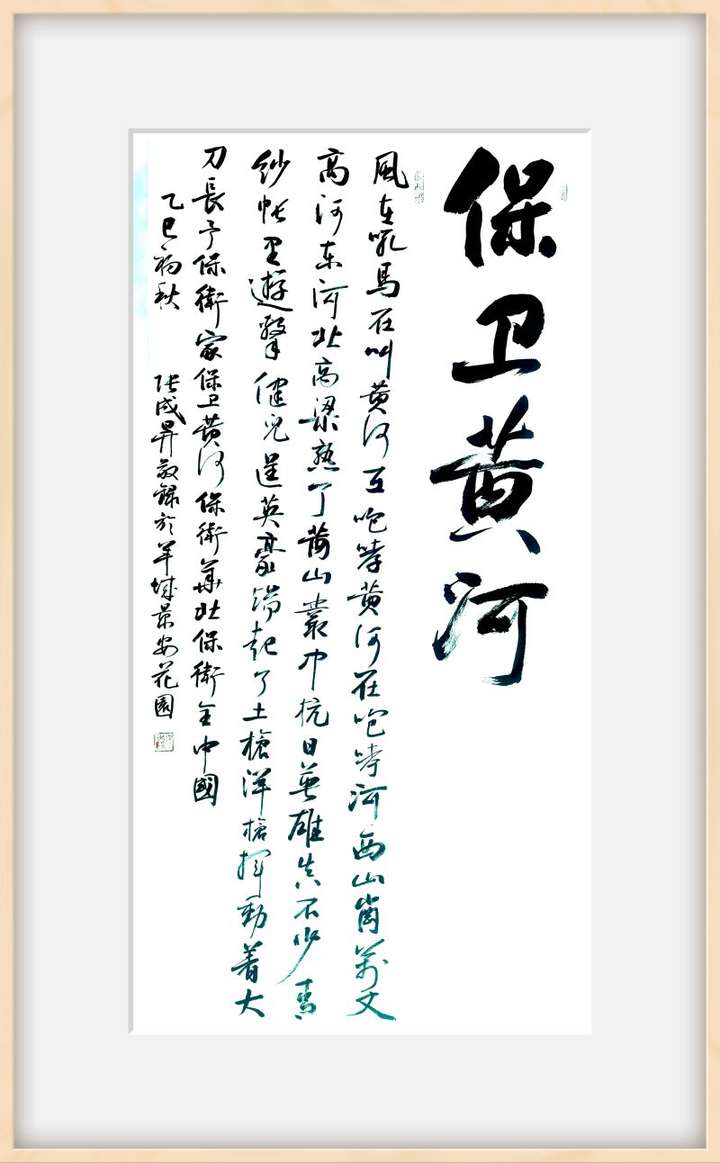 保卫黄河
風在吼馬在叫黄河在咆哮黄河在咆哮河西山崗萬丈
高河东河北高梁熟了萬山叢中抗日英雄真不少青
紗帐里遊擊健兒逞英豪端起了土槍洋槍揮動着大
刀長矛保衛家保卫黄河保衛華北保衛全中國
乙巳初秋 张成昇敬録於羊城景安花園